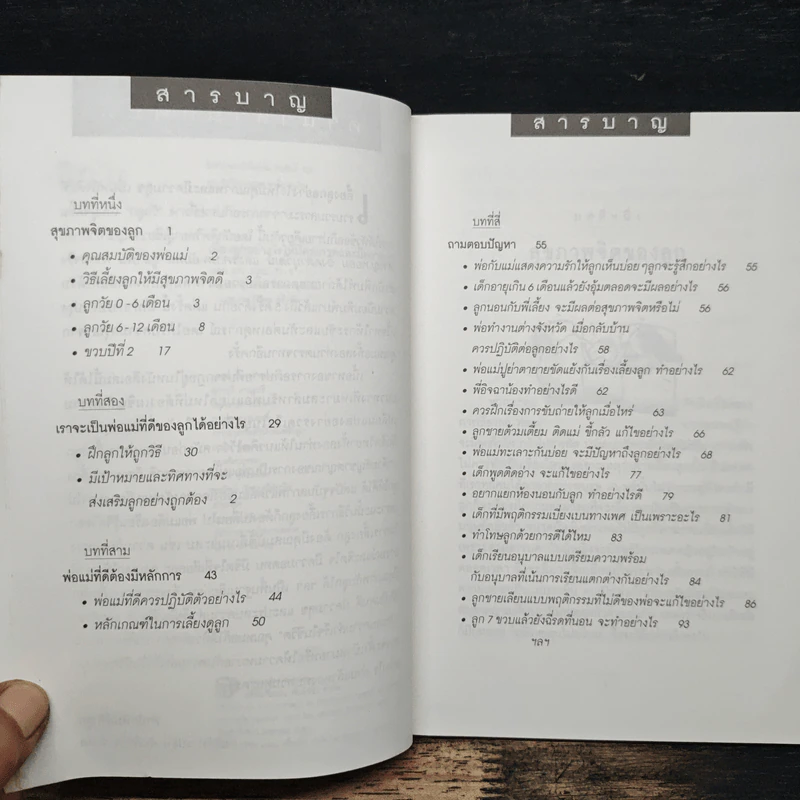 สารบาญ
บทที่หนึ่ง
สุขภาพจิตของลูก 1
• คุณสมบัติของพ่อแม่ 2
• วิธีเลี้ยงลูกให้มีสุขภาพจิตดี 3
• ลูกวัย 0-6 เดือน 3
• ลูกวัย 6-12 เดือน 8
• ขวบปีที่ 2 17
บทที่สอง
เราจะเป็นพ่อแม่ที่ดีของลูกได้อย่างไร 29
• ฝึกลูกให้ถูกวิธี 30
• มีเป้าหมายและทิศทางที่จะ
ส่งเสริมลูกอย่างถูกต้อง 2
บทที่สาม
พ่อแม่ที่ดีต้องมีหลักการ 43
• พ่อแม่ที่ดีควรปฏิบัติตัวอย่างไร 44
• หลักเกณฑ์ในการเลี้ยงดูลูก 50
สารบาญ
บทที่สี่
ถามตอบปัญหา 55
• พ่อกับแม่แสดงความรักให้ลูกเห็นบ่อยๆลูกจะรู้สึกอย่างไร 55
• เด็กอายุเกิน 6 เดือนแล้วยังอุ้มตลอดจะมีผลอย่างไร 56
• ลูกนอนกับพี่เลี้ยง จะมีผลต่อสุขภาพจิตหรือไม่ 56
• พ่อทำงานต่างจังหวัด เมื่อกลับบ้าน
ควรปฏิบัติต่อลูกอย่างไร 58
• พ่อแม่ปู่ย่าตายายขัดแย้งกันเรื่องเลี้ยงลูก ทำอย่างไร 62
• พี่อิจฉาน้องทำอย่างไรดี 62
• ควรฝึกเรื่องการขับถ่ายให้ลูกเมื่อไหร่ 63
• ลูกชายต้วมเตี้ยม ติดแม่ ขี้กลัว แก้ไขอย่างไร 66
• พ่อแม่ทะเลาะกันบ่อย จะมีปัญหาถึงลูกอย่างไร 68
• เด็กพูดติดอ่าง จะแก้ไขอย่างไร 77
• อยากแยกห้องนอนกับลูก ทำอย่างไรดี 79
• เด็กที่มีพฤติกรรมเบี่ยงเบนทางเพศ เป็นเพราะอะไร 81
• ทำโทษลูกด้วยการตีได้ไหม 83
• เด็กเรียนอนุบาลแบบเตรียมความพร้อม
กับอนุบาลที่เน้นการเรียนแตกต่างกันอย่างไร 84
• ลูกชายเลียนแบบพฤติกรรมที่ไม่ดีของพ่อจะแก้ไขอย่างไร 86
• ลูก 7 ขวบแล้วยังฉี่รดที่นอน จะทำอย่างไร 93
ฯลฯ